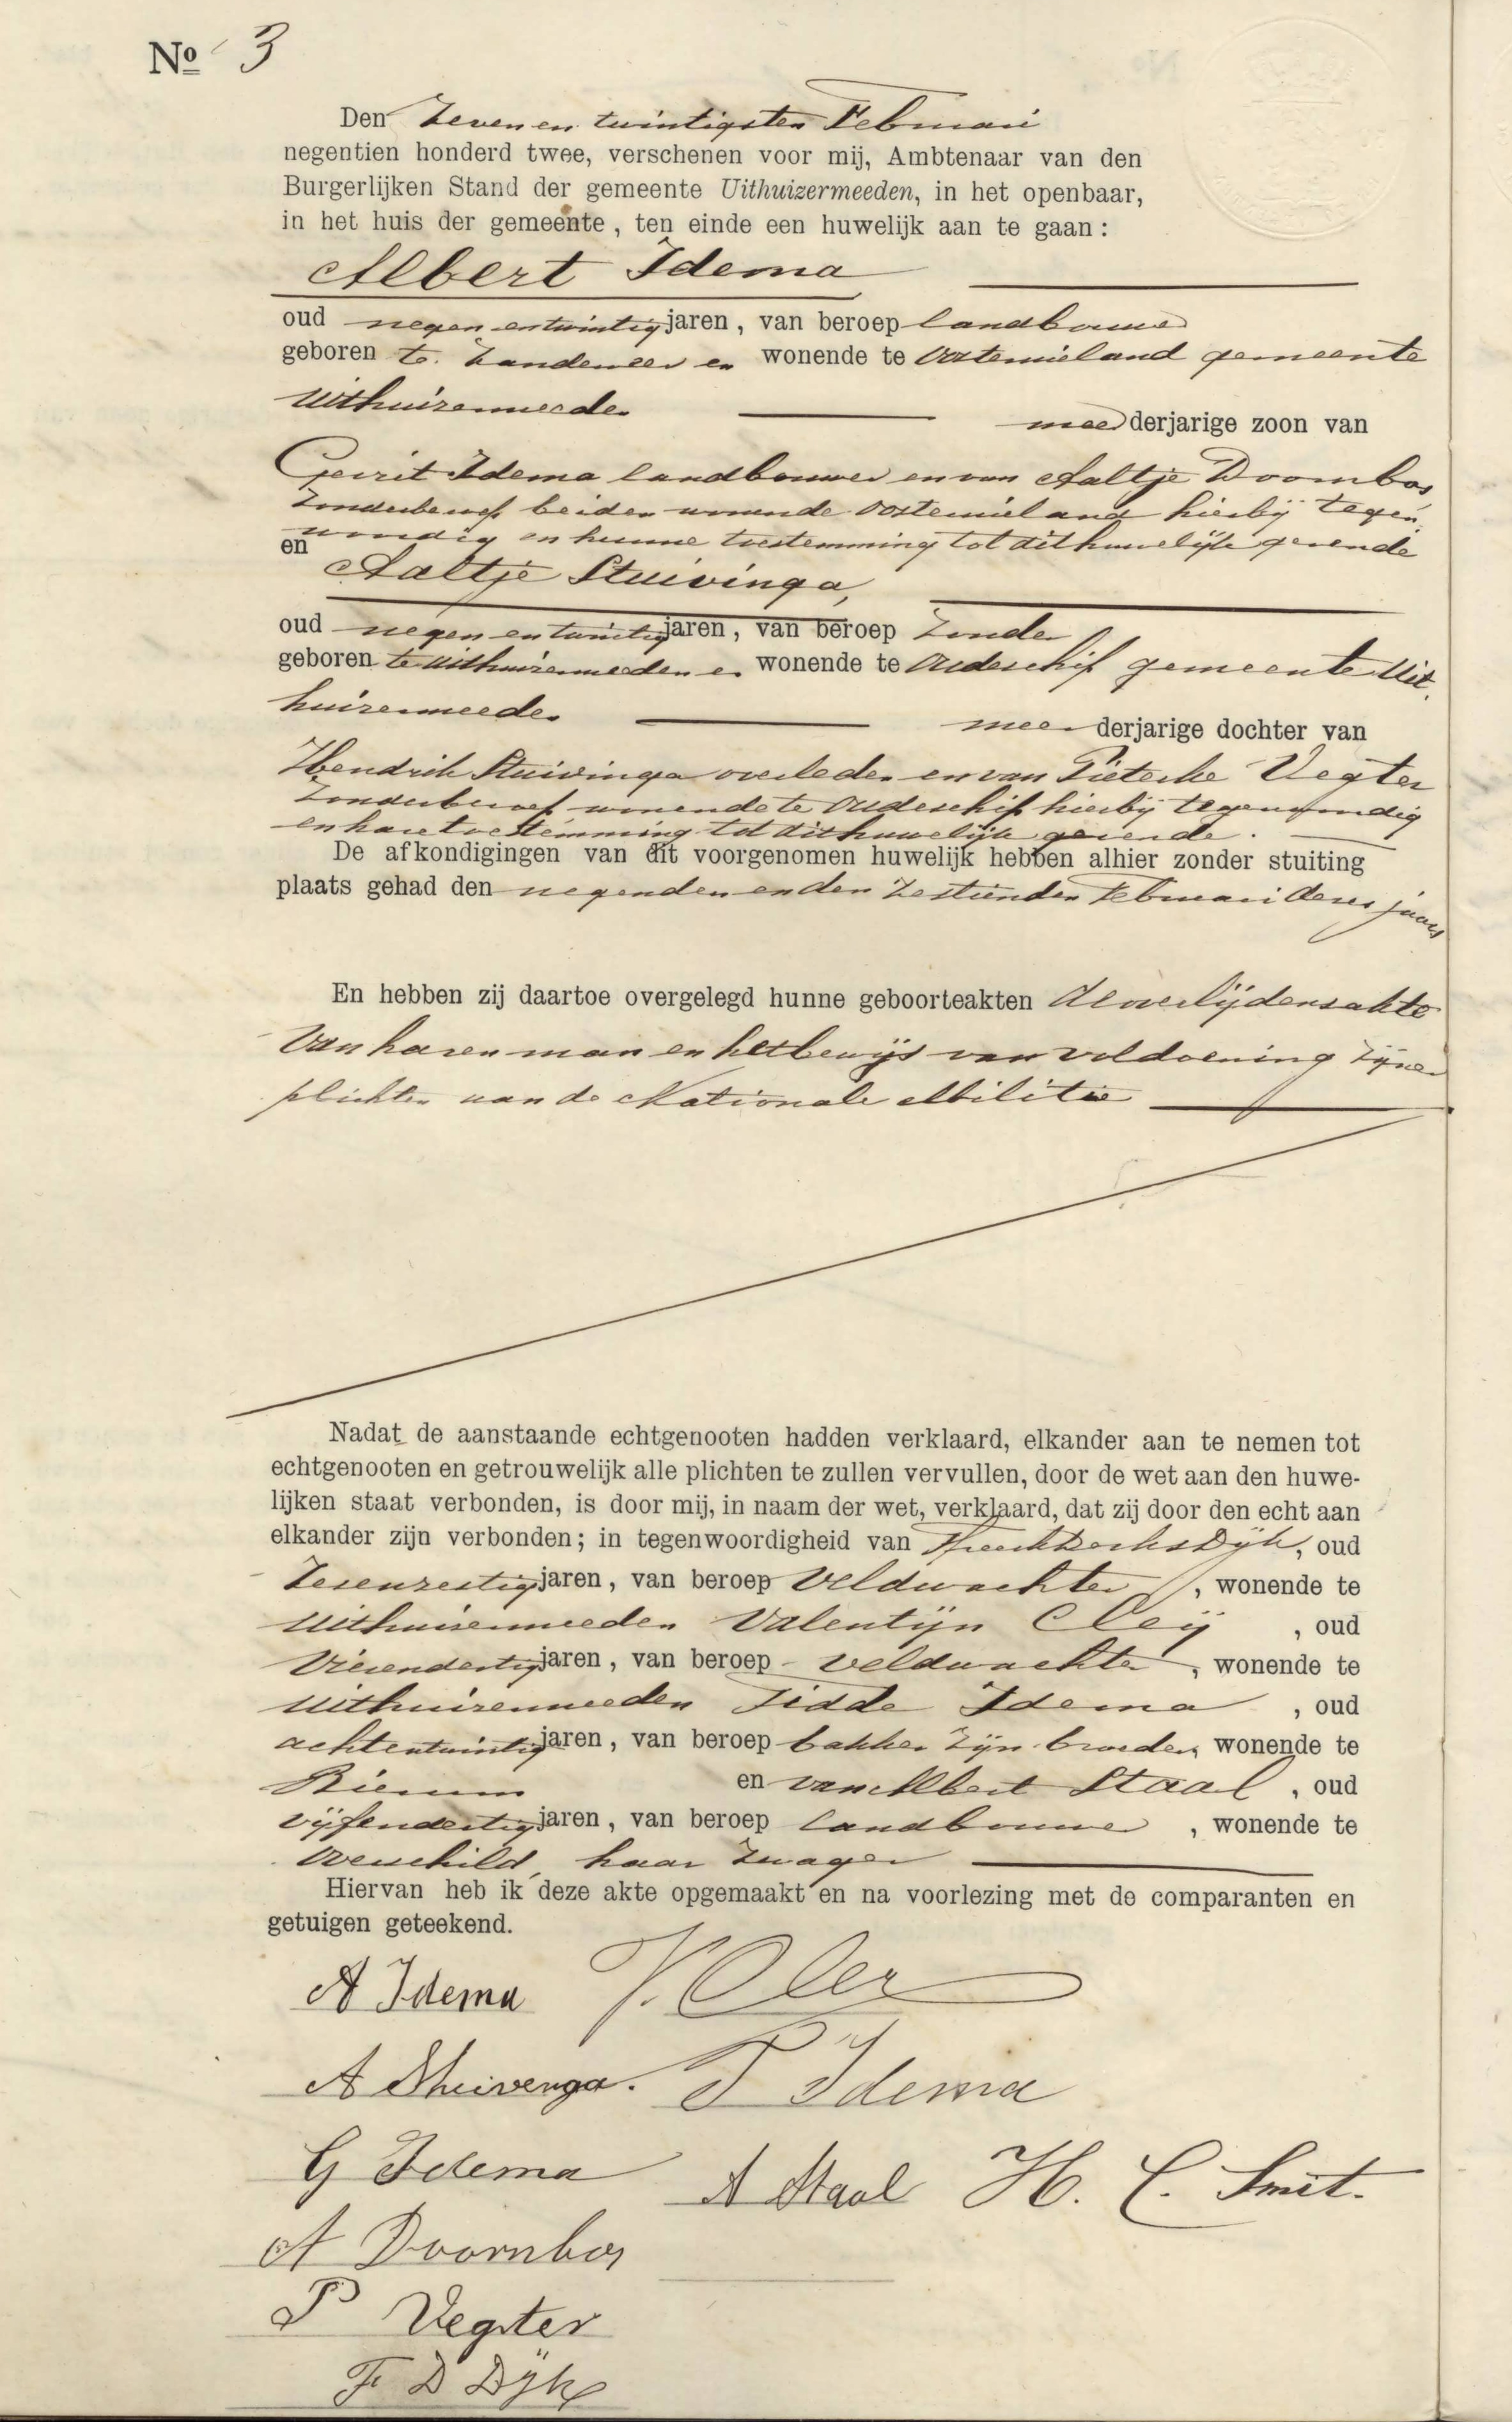 No 3
Den Zeven en twintigsten Februari
negentien honderd twee, verschenen voor mij, Ambtenaar van den
Burgerlijken Stand der gemeente Uithuizermeeden, in het openbaar,
in het huis der gemeente, ten einde een huwelijk aan te gaan:
Albert Idema
oud negen en twintig jaren, van beroep landbouwer
geboren te Zandeweer en wonende te Oosternieland gemeente
Uithuizermeeden meerderjarige zoon van
Gerrit Idema landbouwer en van Aaltje Doornbos
Zonderberoep beiden wonende Oosternieland hierbij tegen
woordig en hunne toestemming tot dit huwelijk gevende
en
Aaltje Stuivinga,
oud negen en twintig jaren, van beroep Zonder
geboren te Uithuizermeeden en wonende te Oudeschip gemeente Uit
huizermeeden meerderjarige dochter van
Hendrik Stuivinga overleden en van Pieterke Vegter
Zonderberoep wonende te Oudeschip hierbij tegenwoordig
en hare toestemming tot dit huwelijk gevende.
De afkondigingen van dit voorgenomen huwelijk hebben alhier zonder stuiting
plaats gehad den negenden en den Zestienden Februari dezes jaars
En hebben zij daartoe overgelegd hunne geboorteakten de overlijdensakte
van haren man en het bewijs van voldoening zijner
plichten aan de Nationale Militie
Nadat de aanstaande echtgenooten hadden verklaard, elkander aan te nemen tot
echtgenooten en getrouwelijk alle plichten te zullen vervullen, door de wet aan den huwe-
lijken staat verbonden, is door mij, in naam der wet, verklaard, dat zij door den echt aan
elkander zijn verbonden; in tegenwoordigheid van Dijk, oud
Zesenzestig jaren, van beroep Veldwachter, wonende te
Uithuizermeeden Valentijn Cleij, oud
Vierendertig jaren, van beroep veldwachter, wonende te
Uithuizermeeden Tidde Idema, oud
achtentwintig jaren, van beroep bakker zijn broeder, wonende te
Bierum en van Albert Staal, oud
vijfendertig jaren, van beroep landbouwer, wonende te
Overschild, haar Zwager
Hiervan heb ik deze akte opgemaakt en na voorlezing met de comparanten en
getuigen geteekend.
A Idema V. Cleij
A Stuivenga. T Idema
G Idema A Staal H. C. Smit.
A Doornbos
P Vegter
F D Dijk